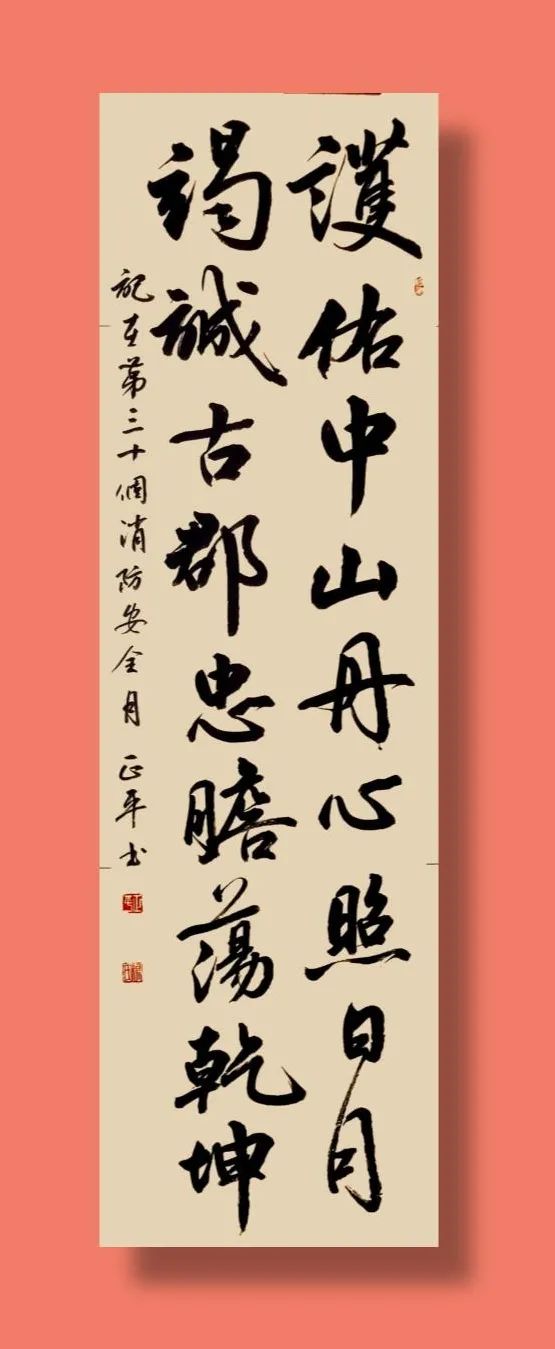 護佑中山丹心照日月
竭誠古郡忠膽蕩乾坤
記在第三十個消防安全月 正平书